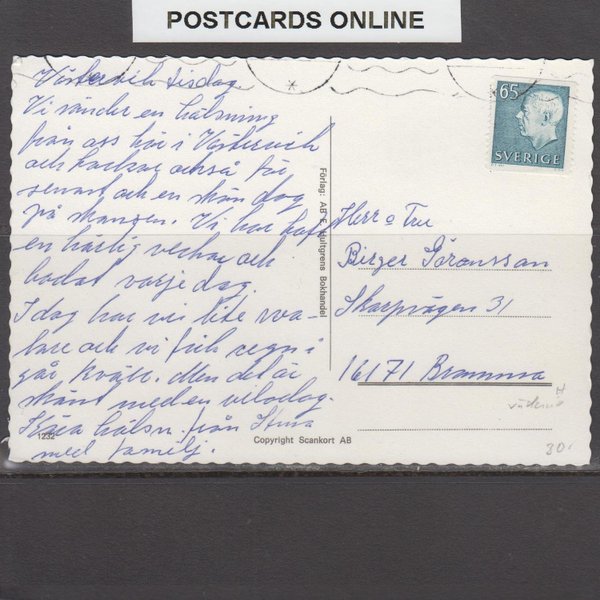 POSTCARDS ONLINE
Västervik tisdag
Vi sänder en hälsning
från oss här i Västervik
och tackar också för
senast och en skön dag
på skansen. Vi har haft
en härlig vecka och
badat varje dag.
I dag har vi lite sva-
lare och vi fick regn i
går kväll. Men det är
skönt med en vilodag.
Kära hälsn. från Stina
med familj.
1232
Förlag: AB E. Hultgrens Bokhandel
Copyright Scankort AB
65
SVERIGE
Herr o Fru
Birger Göransson
Skarpvägen 31
16171 Bromma
30: